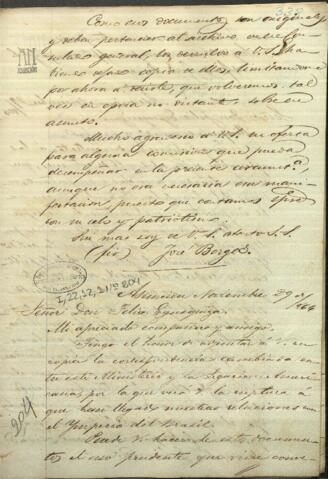 Como esos documentos son originales
y deben pertenecer al archivo de ese Con-
sulado general, los devuelvo á V.S. ha-
biendo sacado copia de ellos limitandome
por ahora á decirle, que volveremos tal
vez en epoca no distante, sobre ese
asunto.
Mucho agradesco á V.S. su oferta
para alguna comision que pueda
desempeñar en la presente circunst.ª,
aunque no era necesaria esa mani-
festacion, puesto que contamos siempre
con su celo y patriotismo.
Sin mas soy de V.S. atento S.S.
(fdo) José Berges.
I,22,12,2 Nº 204
Asuncion Noviembre 29 de 1864
Señor Don Felix Egusquiza.
Mi apreciado compatriota y amigo.
Tengo el honor de adjuntar á V. en
copia la correspondencia cambiada en-
tre este Ministerio y la Legacion Americana,
por la que verá la ruptura á
que han llegado nuestras relaciones con
el Imperio del Brasil.
Puede V. hacer de estos documen-
tos el uso prudente que crea conve-
204